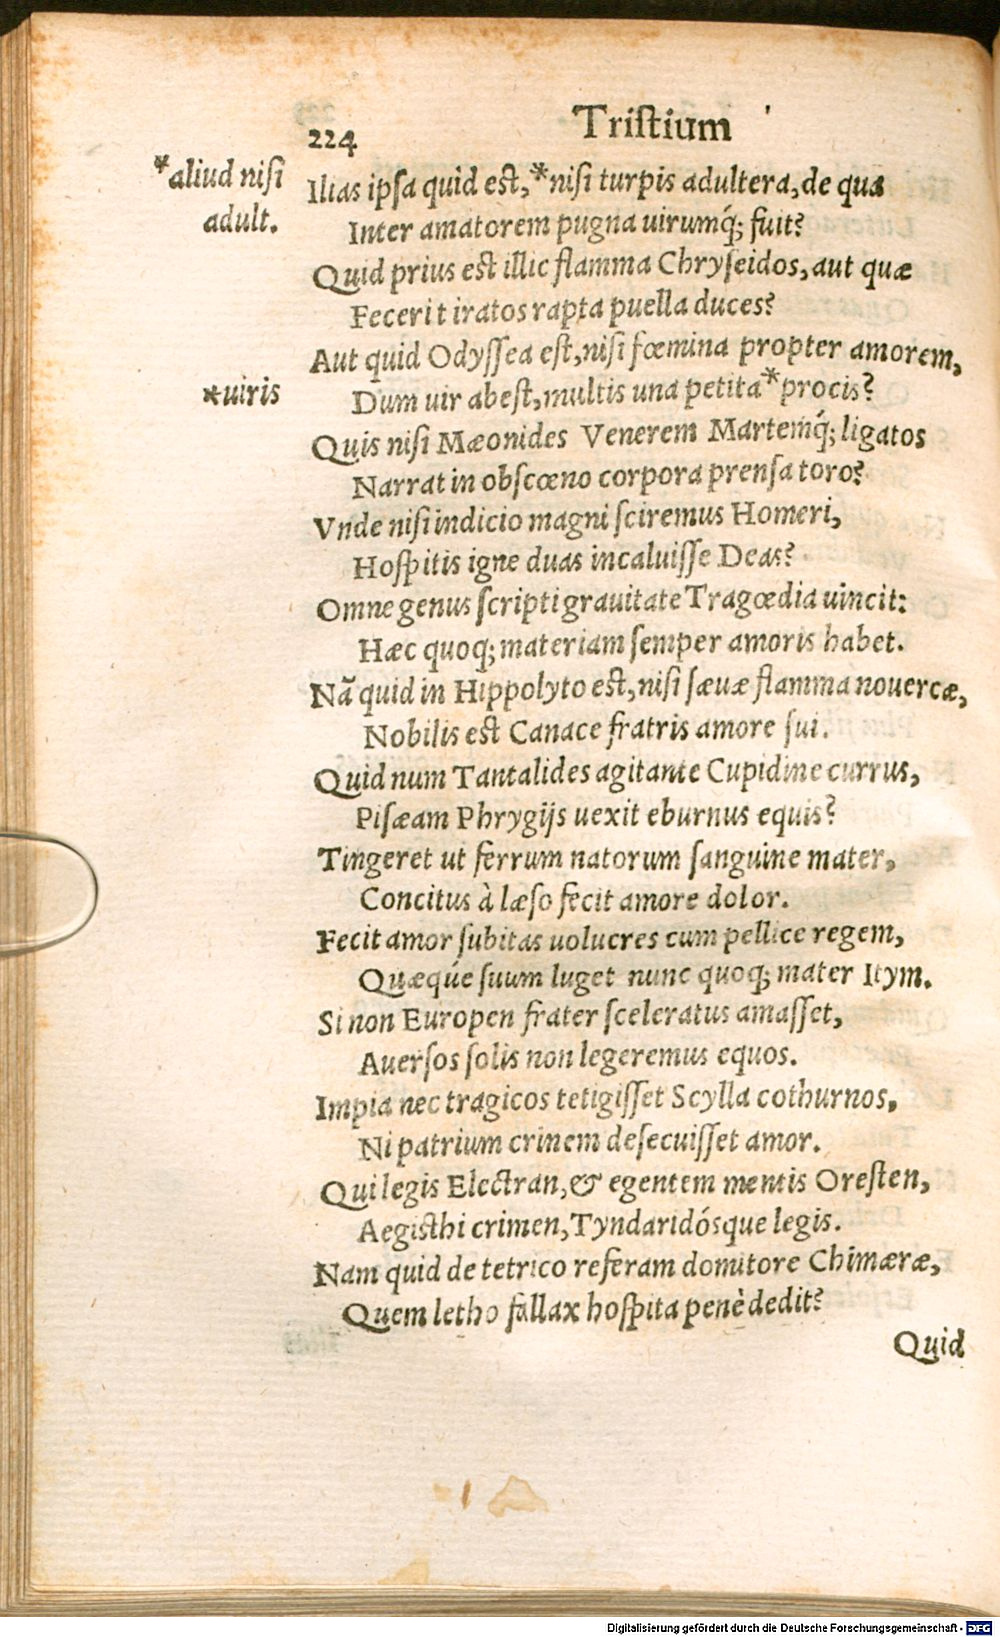 224 Tristium
*aliud nisi
adult.
Ilias ipsa quid est,*nisi turpis adultera, de qua
Inter amatorem pugna uirumq́; fuit?
Quid prius est illic flamma Chryseidos, aut quæ
Fecerit iratos rapta puella duces?
Aut quid Odyssea est, nisi fœmina propter amorem,
*uiris
Dum uir abest, multis una petita*procis?
Quis nisi Mæonides Venerem Martemq́; ligatos
Narrat in obscœno corpora prensa toro?
Vnde nisi indicio magni sciremus Homeri,
Hospitis igne duas incaluisse Deas?
Omne genus scripti grauitate Tragœdia uincit:
Hæc quoq; materiam semper amoris habet.
Nã quid in Hippolyto est, nisi sæuæ flamma nouercæ,
Nobilis est Canace fratris amore sui.
Quid num Tantalides agitante Cupidine currus,
Pisæam Phrygijs uexit eburnus equis?
Tingeret ut ferrum natorum sanguine mater,
Concitus à læso fecit amore dolor.
Fecit amor subitas uolucres cum pellice regem,
Quæq́ue suum luget nunc quoq; mater Itym.
Si non Europen frater sceleratus amasset,
Auersos solis non legeremus equos.
Impia nec tragicos tetigisset Scylla cothurnos,
Ni patrium crinem desecuisset amor.
Qui legis Electran, & egentem mentis Oresten,
Aegisthi crimen, Tyndaridósque legis.
Nam quid de tetrico referam domitore Chimæræ,
Quem letho fallax hospita penè dedit?
Quid
Digitalisierung gefördert durch die Deutsche Forschungsgemeinschaft - DFG